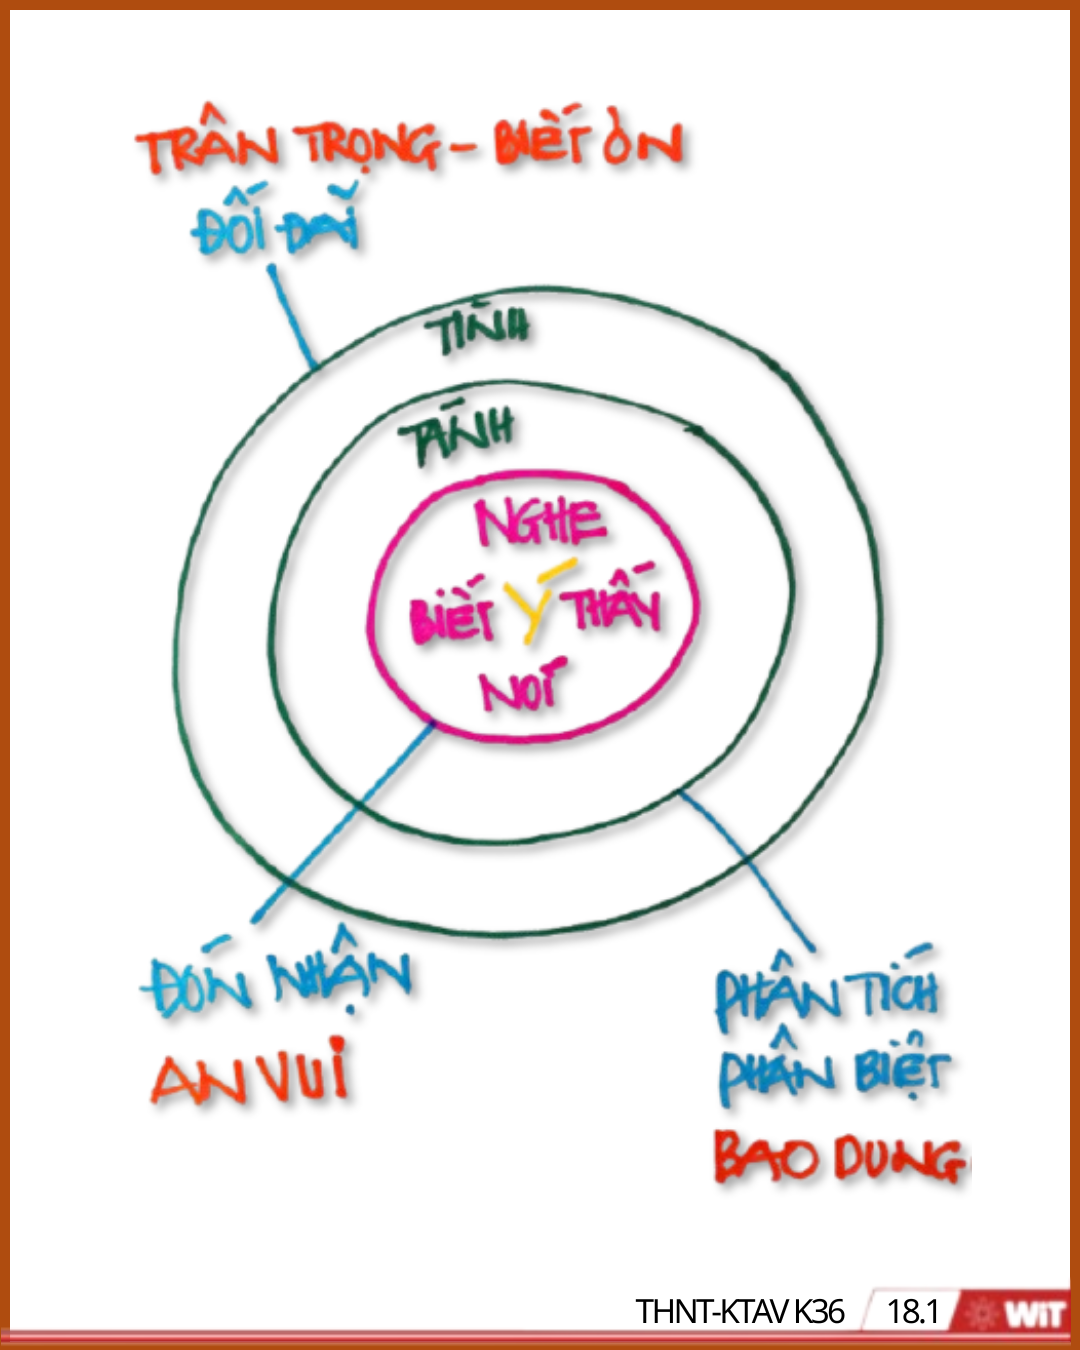 TRÂN TRỌNG - BIẾT ƠN
ĐỐI ĐÃI
TÌNH
TÁNH
NGHE
BIẾT Ý THẤY
NÓI
ĐÓN NHẬN
AN VUI
PHÂN TÍCH
PHÂN BIỆT
BAO DUNG
THNT-KTAV K36 18.1 WiT